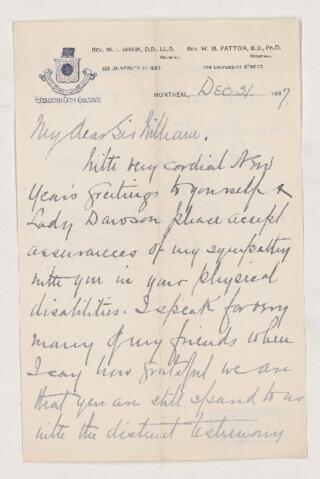 Rev. W. I. Shaw, D.D., LL.D. Rev. W. M. Patton, B.D., Ph.D.
228 University Street. 224 University Street.
Wesleyan Theo College
Montreal, Dec 31 1897.
My dear Sir William,
With very cordial New
Year's greetings to yourself &
Lady Dawson please accept
assurances of my sympathy
with you in your physical
disabilities. I speak for very
many of my friends when
I say how grateful we are
that you are still spared to us
with the distinct testimony